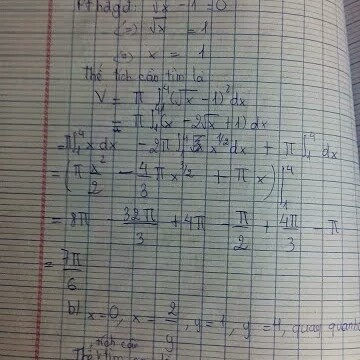 Pthdgđ: √x - 1 = 0
(=) √x = 1
(=) x = 1
Thể tích cần tìm là
V = π ∫₁⁴ (√x - 1)² dx
= π ∫₁⁴ (x - 2√x + 1) dx
= π ∫₁⁴ x dx - 2π ∫₁⁴ x^1/2 dx + π ∫₁⁴ dx
= (π x²/2 - 4/3 π x^3/2 + π x) |₁⁴
= 8π - 32π/3 + 4π - π/2 + 4π/3 - π
= 7π/6
b) x = 0, x = 2/y, y = 1, y = 4, quay quanh
tích cần